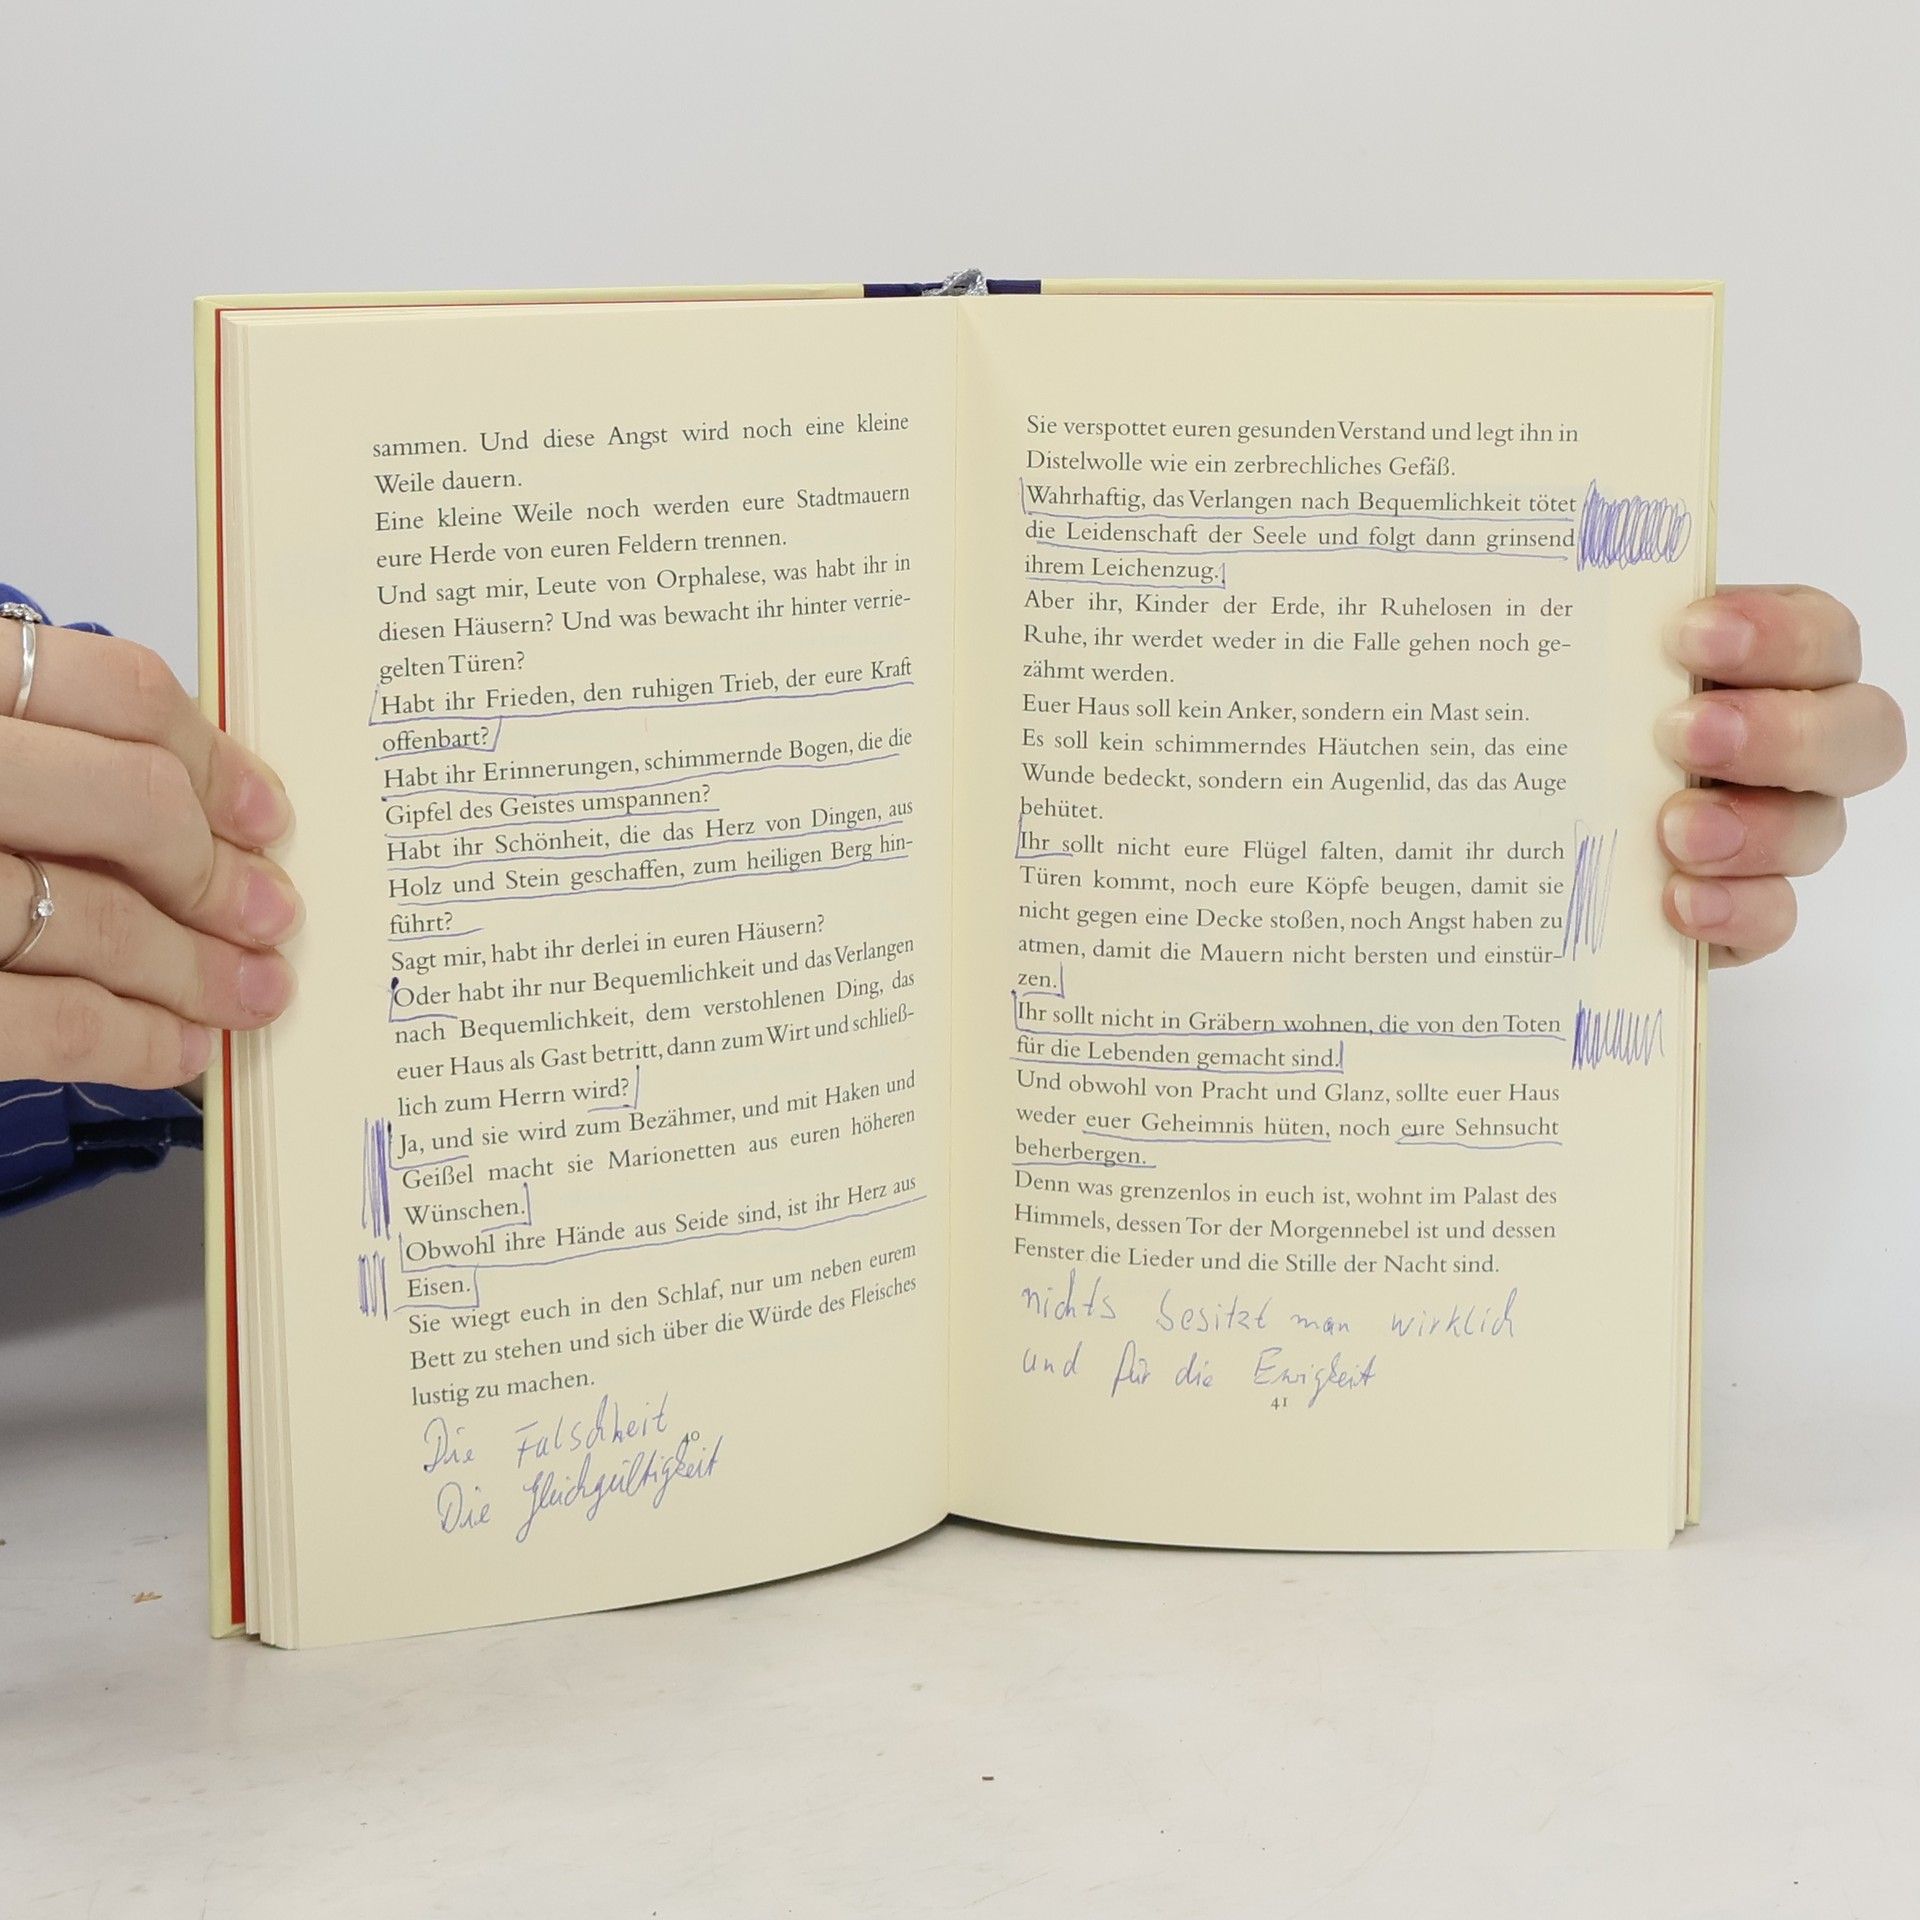 sammen. Und diese Angst wird noch eine kleine
Weile dauern.
Eine kleine Weile noch werden eure Stadtmauern
eure Herde von euren Feldern trennen.
Und sagt mir, Leute von Orphalese, was habt ihr in
diesen Häusern? Und was bewacht ihr hinter verrie-
gelten Türen?
Habt ihr Frieden, den ruhigen Trieb, der eure Kraft
offenbart?
Habt ihr Erinnerungen, schimmernde Bogen, die die
Gipfel des Geistes umspannen?
Habt ihr Schönheit, die das Herz von Dingen, aus
Holz und Stein geschaffen, zum heiligen Berg hin-
führt?
Sagt mir, habt ihr derlei in euren Häusern?
Oder habt ihr nur Bequemlichkeit und das Verlangen
nach Bequemlichkeit, dem verstohlenen Ding, das
euer Haus als Gast betritt, dann zum Wirt und schließ-
lich zum Herrn wird?
Ja, und sie wird zum Bezähmer, und mit Haken und
Geißel macht sie Marionetten aus euren höheren
Wünschen.
Obwohl ihre Hände aus Seide sind, ist ihr Herz aus
Eisen.
Sie wiegt euch in den Schlaf, nur um neben eurem
Bett zu stehen und sich über die Würde des Fleisches
lustig zu machen.
Die Falschheit
40
Die Gleichgültigkeit
Sie verspottet euren gesunden Verstand und legt ihn in
Distelwolle wie ein zerbrechliches Gefäß.
Wahrhaftig, das Verlangen nach Bequemlichkeit tötet
die Leidenschaft der Seele und folgt dann grinsend
ihrem Leichenzug.
Aber ihr, Kinder der Erde, ihr Ruhelosen in der
Ruhe, ihr werdet weder in die Falle gehen noch ge-
zähmt werden.
Euer Haus soll kein Anker, sondern ein Mast sein.
Es soll kein schimmerndes Häutchen sein, das eine
Wunde bedeckt, sondern ein Augenlid, das das Auge
behütet.
Ihr sollt nicht eure Flügel falten, damit ihr durch
Türen kommt, noch eure Köpfe beugen, damit sie
nicht gegen eine Decke stoßen, noch Angst haben zu
atmen, damit die Mauern nicht bersten und einstür-
zen.
Ihr sollt nicht in Gräbern wohnen, die von den Toten
für die Lebenden gemacht sind.
Und obwohl von Pracht und Glanz, sollte euer Haus
weder euer Geheimnis hüten, noch eure Sehnsucht
beherbergen.
Denn was grenzenlos in euch ist, wohnt im Palast des
Himmels, dessen Tor der Morgennebel ist und dessen
Fenster die Lieder und die Stille der Nacht sind.
nichts besitzt man wirklich
und für die Ewigkeit
41